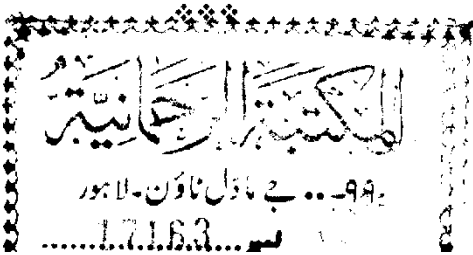 المكتبة الرحمانية
۹۹... جے ماڈل ٹاؤن۔ لاہور
نمبر...17163......